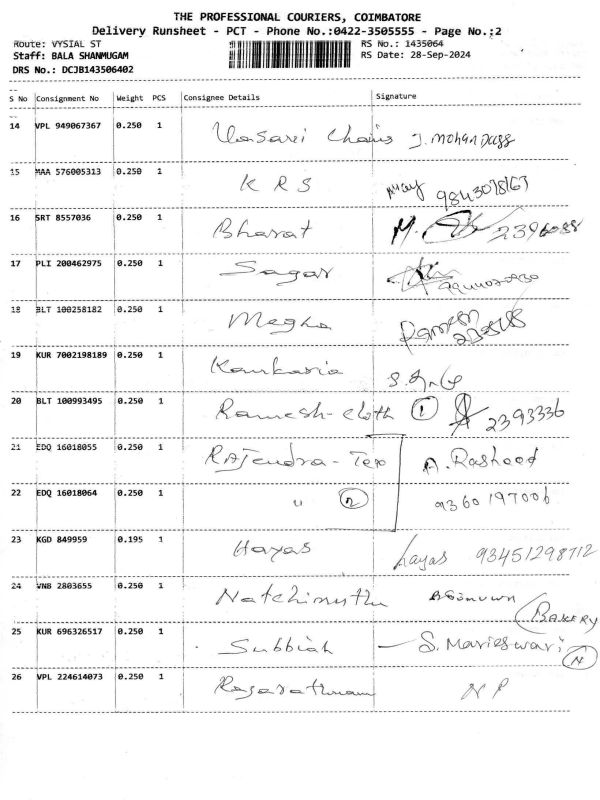 THE PROFESSIONAL COURIERS, COIMBATORE
Delivery Runsheet - PCT - Phone No.:0422-3505555 - Page No.:2
Route: VYSIAL ST RS No.: 1435064
Staff: BALA SHANMUGAM RS Date: 28-Sep-2024
DRS No.: DCJB143506402
S No Consignment No Weight PCS Consignee Details Signature
14 VPL 949067367 0.250 1 Vasavi Chains J. Mohan Dass
15 MAA 576005313 0.250 1 K R S
16 SRT 8557036 0.250 1 Bharat M.
17 PLI 200462975 0.250 1 Sagar
18 BLT 100258182 0.250 1 Megha Ramesh
19 KUR 7002198189 0.250 1 Kankaria
20 BLT 100993495 0.250 1 Ramesh-cloth 1 2393336
21 EDQ 16018055 0.250 1 Rajendra-Tex A. Rasheed
22 EDQ 16018064 0.250 1 " 2 9360197006
23 KGD 849959 0.195 1 Hayas hayas 93451298712
24 VNB 2803655 0.250 1 Natchimuthu BAKERY
25 KUR 696326517 0.250 1 Subbiah - S. Marieswari N
26 VPL 224614073 0.250 1 Rajarathnam N P